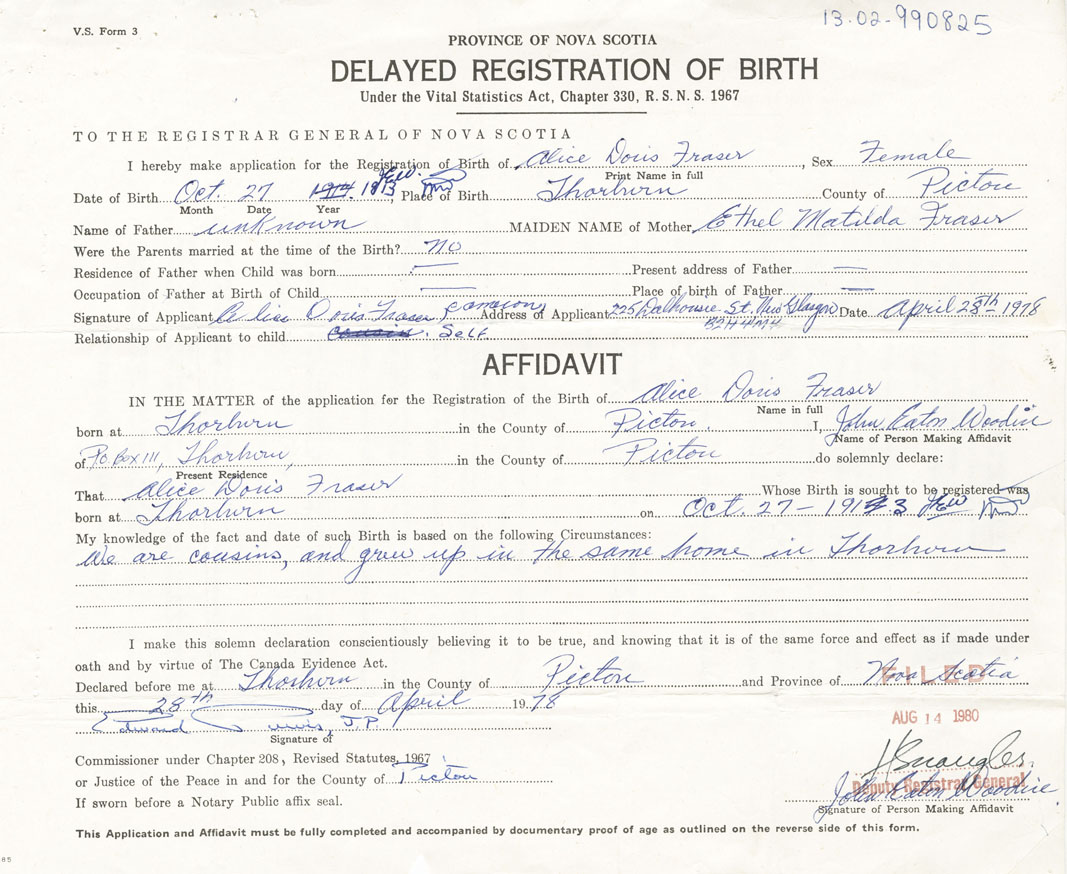 13-02-990825
V.S. Form 3
PROVINCE OF NOVA SCOTIA
DELAYED REGISTRATION OF BIRTH
Under the Vital Statistics Act, Chapter 330, R.S.N.S. 1967
TO THE REGISTRAR GENERAL OF NOVA SCOTIA
I hereby make application for the Registration of Birth of Alice Doris Fraser, Sex Female
Print Name in full
Date of Birth Oct. 27 1913 Place of Birth Thorburn County of Picton
Month Date Year
Name of Father unknown MAIDEN NAME of Mother Ethel Matilda Fraser
Were the Parents married at the time of the Birth? No
Residence of Father when Child was born — Present address of Father —
Occupation of Father at Birth of Child — Place of birth of Father —
Signature of Applicant Doris Fraser Address of Applicant 225 Dalhousie St. New Glasgow Date April 28th 1978
B2H4M4
Relationship of Applicant to child cousin. Self
AFFIDAVIT
IN THE MATTER of the application for the Registration of the Birth of Alice Doris Fraser
Name in full
born at Thorburn in the County of Picton. I, John Eaton Woodin
Name of Person Making Affidavit
of PO Box 111, Thorburn, in the County of Picton do solemnly declare:
Present Residence
That Alice Doris Fraser Whose Birth is sought to be registered was
born at Thorburn on Oct. 27 - 1913 JEW
My knowledge of the fact and date of such Birth is based on the following Circumstances:
We are cousins, and grew up in the same home in Thorburn
I make this solemn declaration conscientiously believing it to be true, and knowing that it is of the same force and effect as if made under
oath and by virtue of The Canada Evidence Act.
Declared before me at Thorburn in the County of Picton and Province of Nova Scotia
FILED
this 28th day of April 1978
AUG 14 1980
Edward J.P.
Signature of
Commissioner under Chapter 208, Revised Statutes, 1967
or Justice of the Peace in and for the County of Picton
Deputy Registrar General
John Eaton Woodin
If sworn before a Notary Public affix seal.
Signature of Person Making Affidavit
This Application and Affidavit must be fully completed and accompanied by documentary proof of age as outlined on the reverse side of this form.